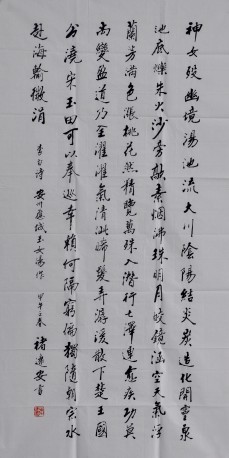 神女殁幽境湯池流大川陰陽結炎炭造化開靈泉
地底爍朱火沙旁歊素烟沸珠躍明月皎鏡涵空天氣浮
蘭芳滿色漲桃花然精覽萬殊入潛行七澤連愈疾功莫
尚變盈道乃全濯濯氣清泚晞髮弄潺湲散下楚王國
分澆宋玉田可以奉巡幸賴何隔窮偏獨隨朝宗水
赴海輸微涓
李白詩 安州應城玉女湯作 甲午之春 褚遵安書